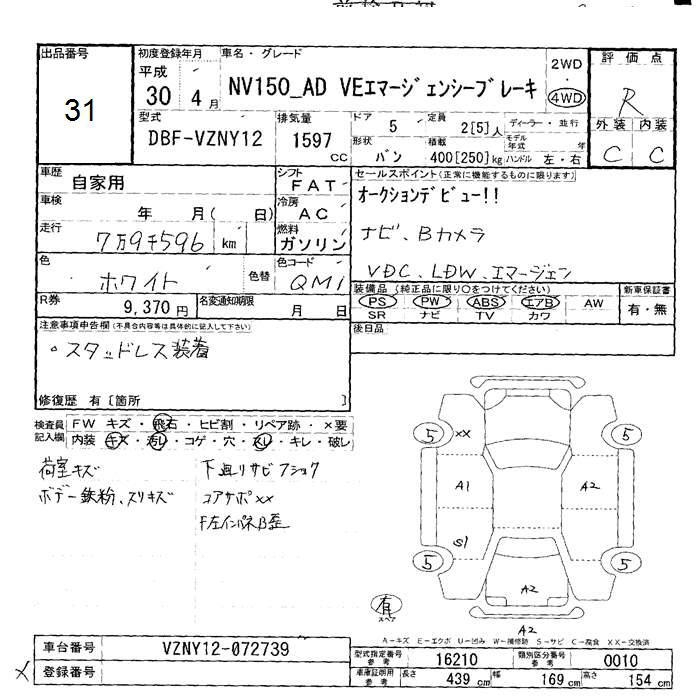 出品番号
31
初度登録年月
平成
30年4月
車名・グレード
NV150_AD VEエマージェンシーブレーキ
2WD
・
4WD
評価点
R
外装 内装
C C
型式
DBF-VZNY12
排気量
1597
CC
ドア
5
定員
2[5]人
ディーラー・並行
形状
バン
積載
400[250]kg
モデル年式 年
ハンドル 左・右
車歴
自家用
シフト
FAT
セールスポイント(正常に機能するものに限ります)
オークションデビュー!!
車検
年 月( 日)
冷房
AC
走行
7万9千596 km
燃料
ガソリン
ナビ、Bカメラ
色
ホワイト
色替
色コード
QM1
VDC、LDW、エマージェン
R券
9,370円
名変通知期限
月 日
装備品 (純正品に限り○をつけてください)
PS PW ABS エアB AW
SR ナビ TV カワ
新車保証書
有・無
注意事項申告欄(不具合内容等は具体的に記入して下さい)
。スタッドレス装着
後日品
修復歴 有 [箇所 ]
検査員記入欄
FW キズ・飛石・ヒビ割・リペア跡・×要
内装 キズ・汚レ・コゲ・穴・スレ・キレ・破レ
荷室キズ
ボデー鉄粉、スリキズ
下廻リサビフショク
コアサポ××
F左インパネB歪
5 ×× 5
A1 A2
S1
5 5
A2
有
スペア
A2
A-キズ E-エクボ U-凹み W-補修跡 S-サビ C-腐食 XX-交換済
車台番号
VZNY12-072739
登録番号
型式指定番号
参考
16210
類別区分番号
参考
0010
車庫証明用
参考
長さ 439 cm 幅 169 cm 高さ 154 cm